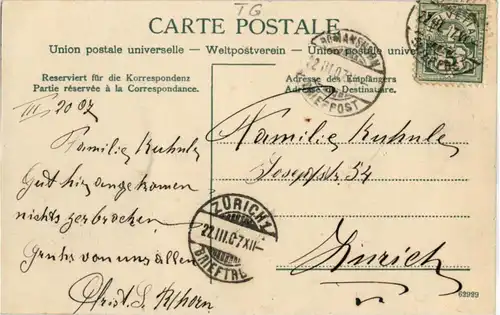 TG
CARTE POSTALE
Union postale universelle – Weltpostverein – Union postale universelle
Reserviert für die Korrespondenz
Partie réservée à la Correspondance.
Adresse des Empfängers
Adresse du Destinataire.
ROMANSHORN
22.III.07
BRIEFPOST
III 20 07
Familie Kuhnle
Gut hier angekomen
nichts zerbrochen
Gruhs von uns allen
Familie Kuhnle
Josephstr. 54
Zürich
ZÜRICH 1
22.III.07 XII
BRIEFTR.
62929